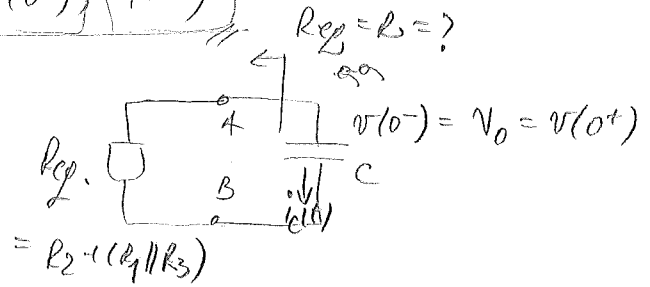 Req = R = ?
A
v(0⁻) = V₀ = v(0⁺)
Req.
B
C
ic(t)
= R₂ + (R₁ || R₃)